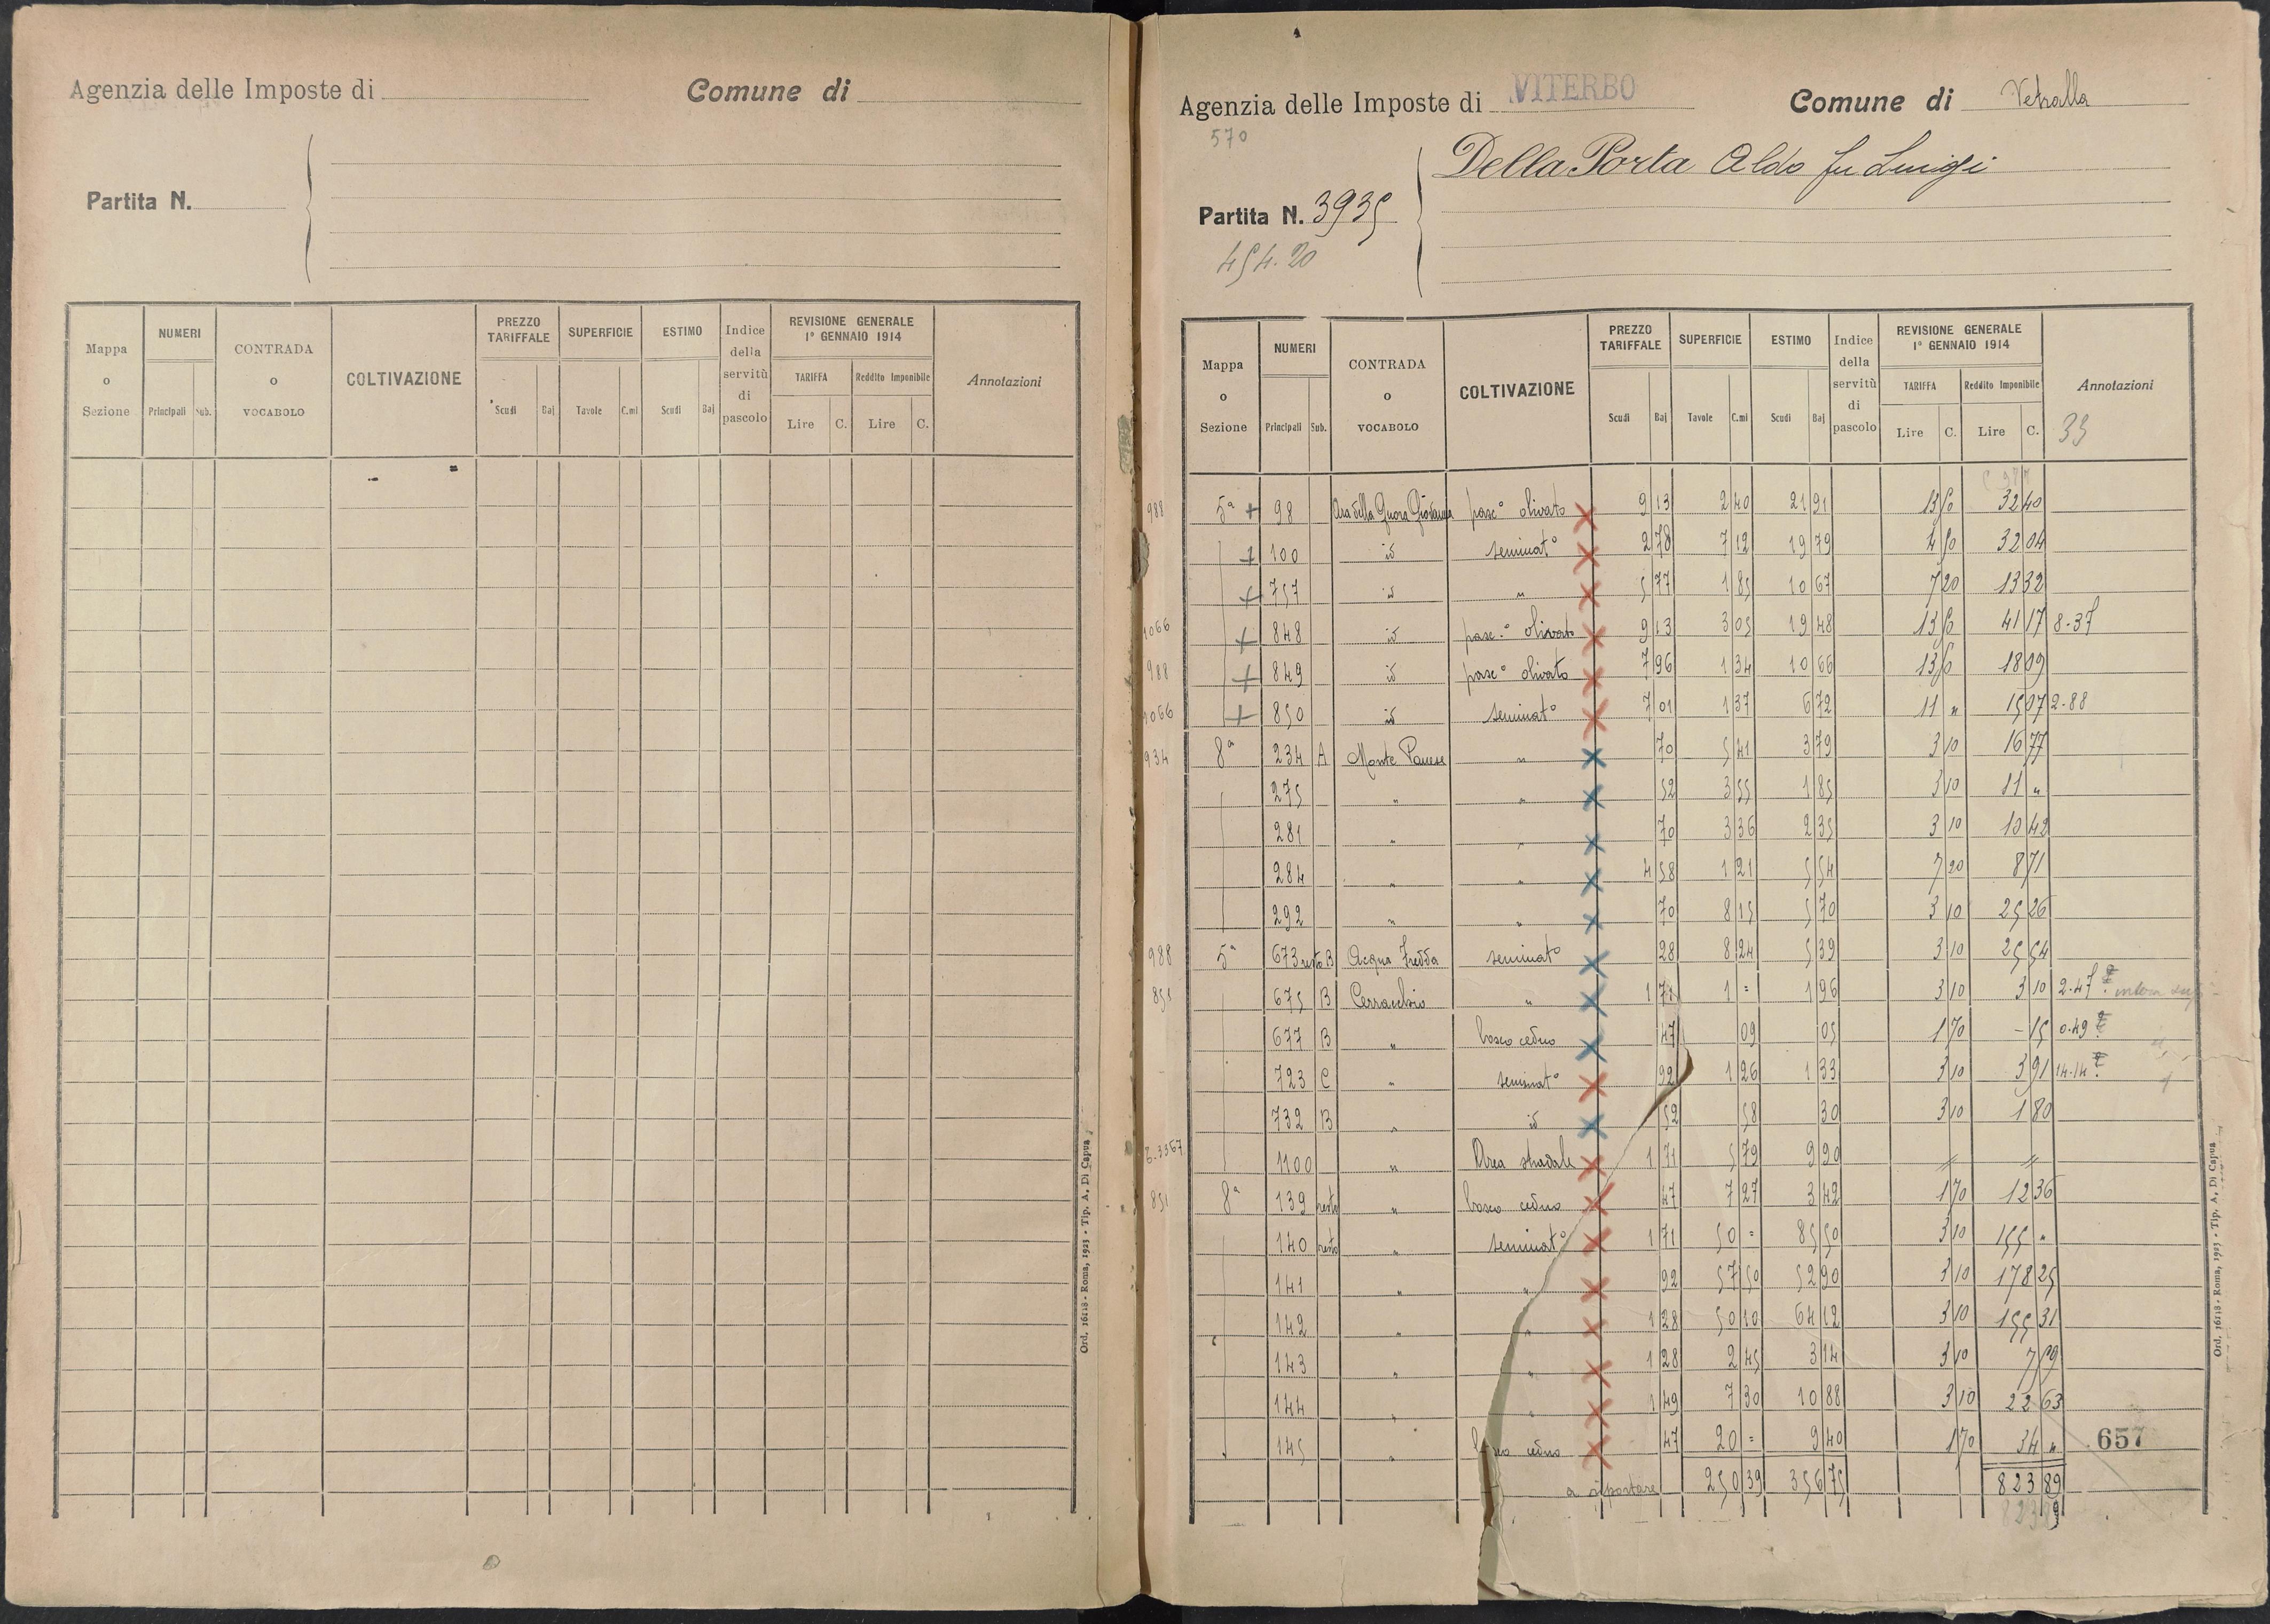 Agenzia delle Imposte di
Comune di
Partita N.
Mappa o Sezione
NUMERI
Principali Sub.
CONTRADA o VOCABOLO
COLTIVAZIONE
PREZZO TARIFFALE
Scudi Baj
SUPERFICIE
Tavole C.mi
ESTIMO
Scudi Baj
Indice della servitù di pascolo
REVISIONE GENERALE 1° GENNAIO 1914
TARIFFA Reddito Imponibile
Lire C. Lire C.
Annotazioni
Ord. 16118 - Roma, 1923 - Tip. A. Di Capua
Agenzia delle Imposte di VITERBO
Comune di Vetralla
570
Della Porta Aldo fu Luigi
Partita N. 3935
454.20
Mappa o Sezione
NUMERI
Principali Sub.
CONTRADA o VOCABOLO
COLTIVAZIONE
PREZZO TARIFFALE
Scudi Baj
SUPERFICIE
Tavole C.mi
ESTIMO
Scudi Baj
Indice della servitù di pascolo
REVISIONE GENERALE 1° GENNAIO 1914
TARIFFA Reddito Imponibile
Lire C. Lire C.
Annotazioni
988 5ª + 98 pasc° olivato 9 13 2 40 21 91 13 50 32 40
+ 100 id seminat° 2 78 7 12 19 79 4 50 32 04
+ 757 id " 5 77 1 85 10 67 7 20 13 32
1066 + 848 id pasc.° olivato 9 13 3 05 19 48 13 50 41 17 8-37
988 + 849 id pasc° olivato 7 96 1 34 10 66 13 50 18 09
1066 + 850 id seminat° 7 01 1 37 6 72 11 " 15 07 2-88
934 8ª 234 A Monte Panese " 70 5 41 3 79 3 10 16 77
275 " " 52 3 55 1 85 3 10 11 "
281 " " 70 3 36 2 35 3 10 10 42
284 " " 4 58 1 21 5 54 7 20 8 71
292 " " 70 8 15 5 70 3 10 25 26
988 5ª 673 resto B Acqua Fredda seminat° 28 8 24 5 39 3 10 25 54
851 675 B Cerracchio " 1 71 1 = 1 96 3 10 3 10 2-47
677 B " bosco ceduo 47 09 05 1 70 - 15 0-49
723 C " seminat° 92 1 26 1 33 3 10 3 91 14-14
732 B " id 52 58 30 3 10 1 80
1100 " Area stradale 1 71 5 79 9 90 = =
851 8ª 139 resto " bosco ceduo 47 7 27 3 42 1 70 12 36
140 resto " seminat° 1 71 50 = 85 50 3 10 155 "
141 " " 92 57 50 52 90 3 10 178 25
142 " " 1 28 50 10 64 12 3 10 155 31
143 " " 1 28 2 45 3 14 3 10 7 59
144 " " 1 49 7 30 10 88 3 10 22 63
145 " bosco ceduo 47 20 = 9 40 1 70 34 "
657
a riportare 250 39 356 75 823 89
Ord. 16118 - Roma, 1923 - Tip. A. Di Capua